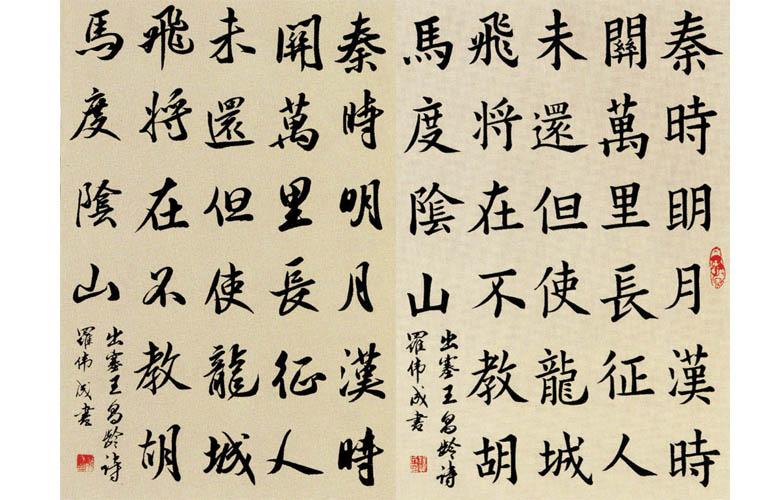 秦時眀月漢時
關萬里長征人
未還但使龍城
飛將在不教胡
馬度陰山
出塞王昌齡詩
羅伟成書
秦時明月漢時
關萬里長征人
未還但使龍城
飛將在不教胡
馬度陰山
出塞王昌齡詩
羅伟成書